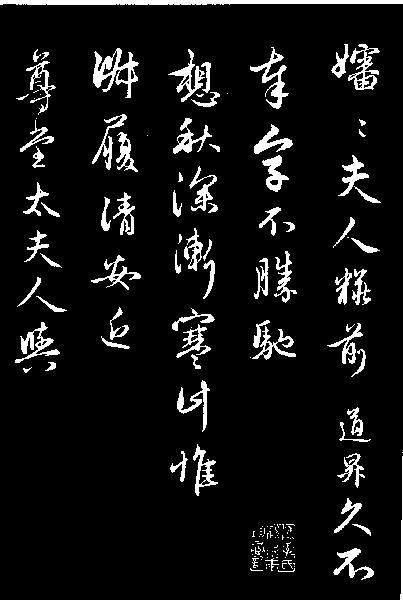 嬸〻夫人粧前道昇久不
奉字不勝馳
想秋深漸寒計惟
淑履清安近
尊堂太夫人與